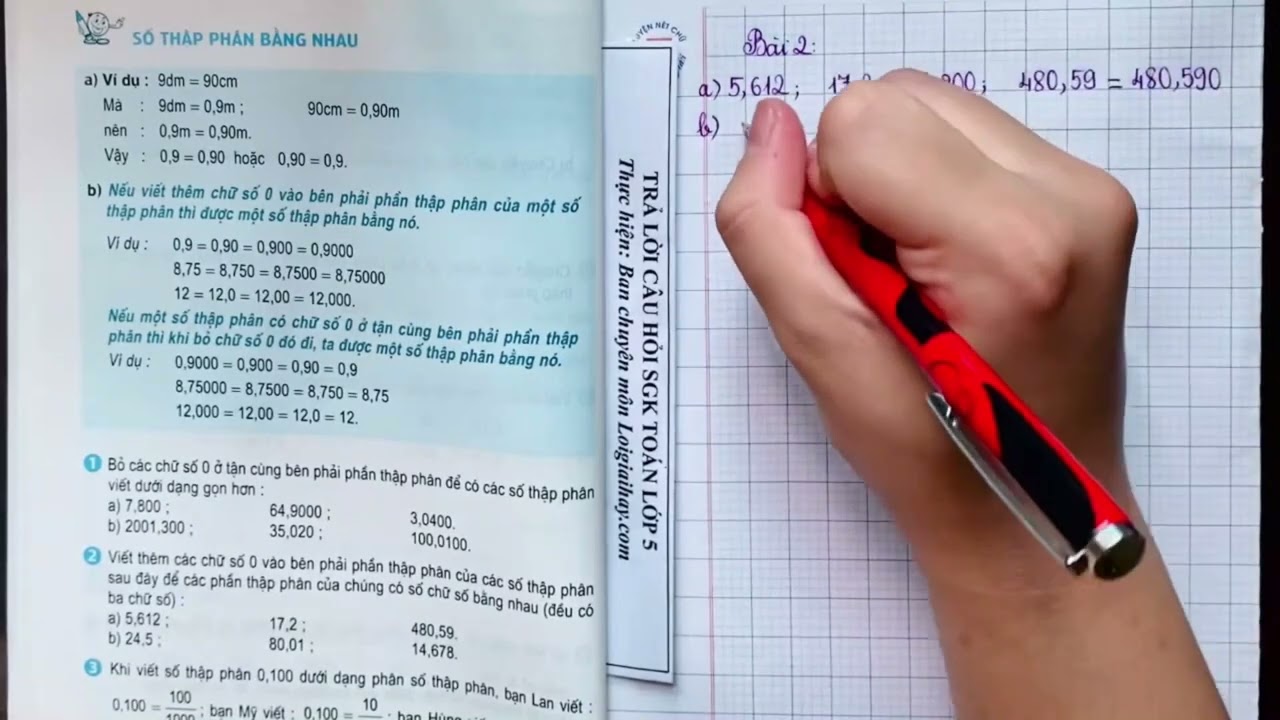 SỐ THẬP PHÂN BẰNG NHAU
a) Ví dụ : 9dm = 90cm
Mà : 9dm = 0,9m ; 90cm = 0,90m
nên : 0,9m = 0,90m.
Vậy : 0,9 = 0,90 hoặc 0,90 = 0,9.
b) Nếu viết thêm chữ số 0 vào bên phải phần thập phân của một số
thập phân thì được một số thập phân bằng nó.
Ví dụ : 0,9 = 0,90 = 0,900 = 0,9000
8,75 = 8,750 = 8,7500 = 8,75000
12 = 12,0 = 12,00 = 12,000.
Nếu một số thập phân có chữ số 0 ở tận cùng bên phải phần thập
phân thì khi bỏ chữ số 0 đó đi, ta được một số thập phân bằng nó.
Ví dụ : 0,9000 = 0,900 = 0,90 = 0,9
8,75000 = 8,7500 = 8,750 = 8,75
12,000 = 12,00 = 12,0 = 12.
1 Bỏ các chữ số 0 ở tận cùng bên phải phần thập phân để có các số thập phân
viết dưới dạng gọn hơn :
a) 7,800 ; 64,9000 ; 3,0400.
b) 2001,300 ; 35,020 ; 100,0100.
2 Viết thêm các chữ số 0 vào bên phải phần thập phân của các số thập phân
sau đây để các phần thập phân của chúng có số chữ số bằng nhau (đều có
ba chữ số) :
a) 5,612 ; 17,2 ; 480,59.
b) 24,5 ; 80,01 ; 14,678.
3 Khi viết số thập phân 0,100 dưới dạng phân số thập phân, bạn Lan viết :
0,100 = 100 ; bạn Mỹ viết : 0,100 = 10 ; bạn
TRẢ LỜI CÂU HỎI SGK TOÁN LỚP 5
Thực hiện: Ban chuyên môn Loigiaihay.com
NÉT CHỮ
Bài 2:
a) 5,612 ; 480,59 = 480,590
b)